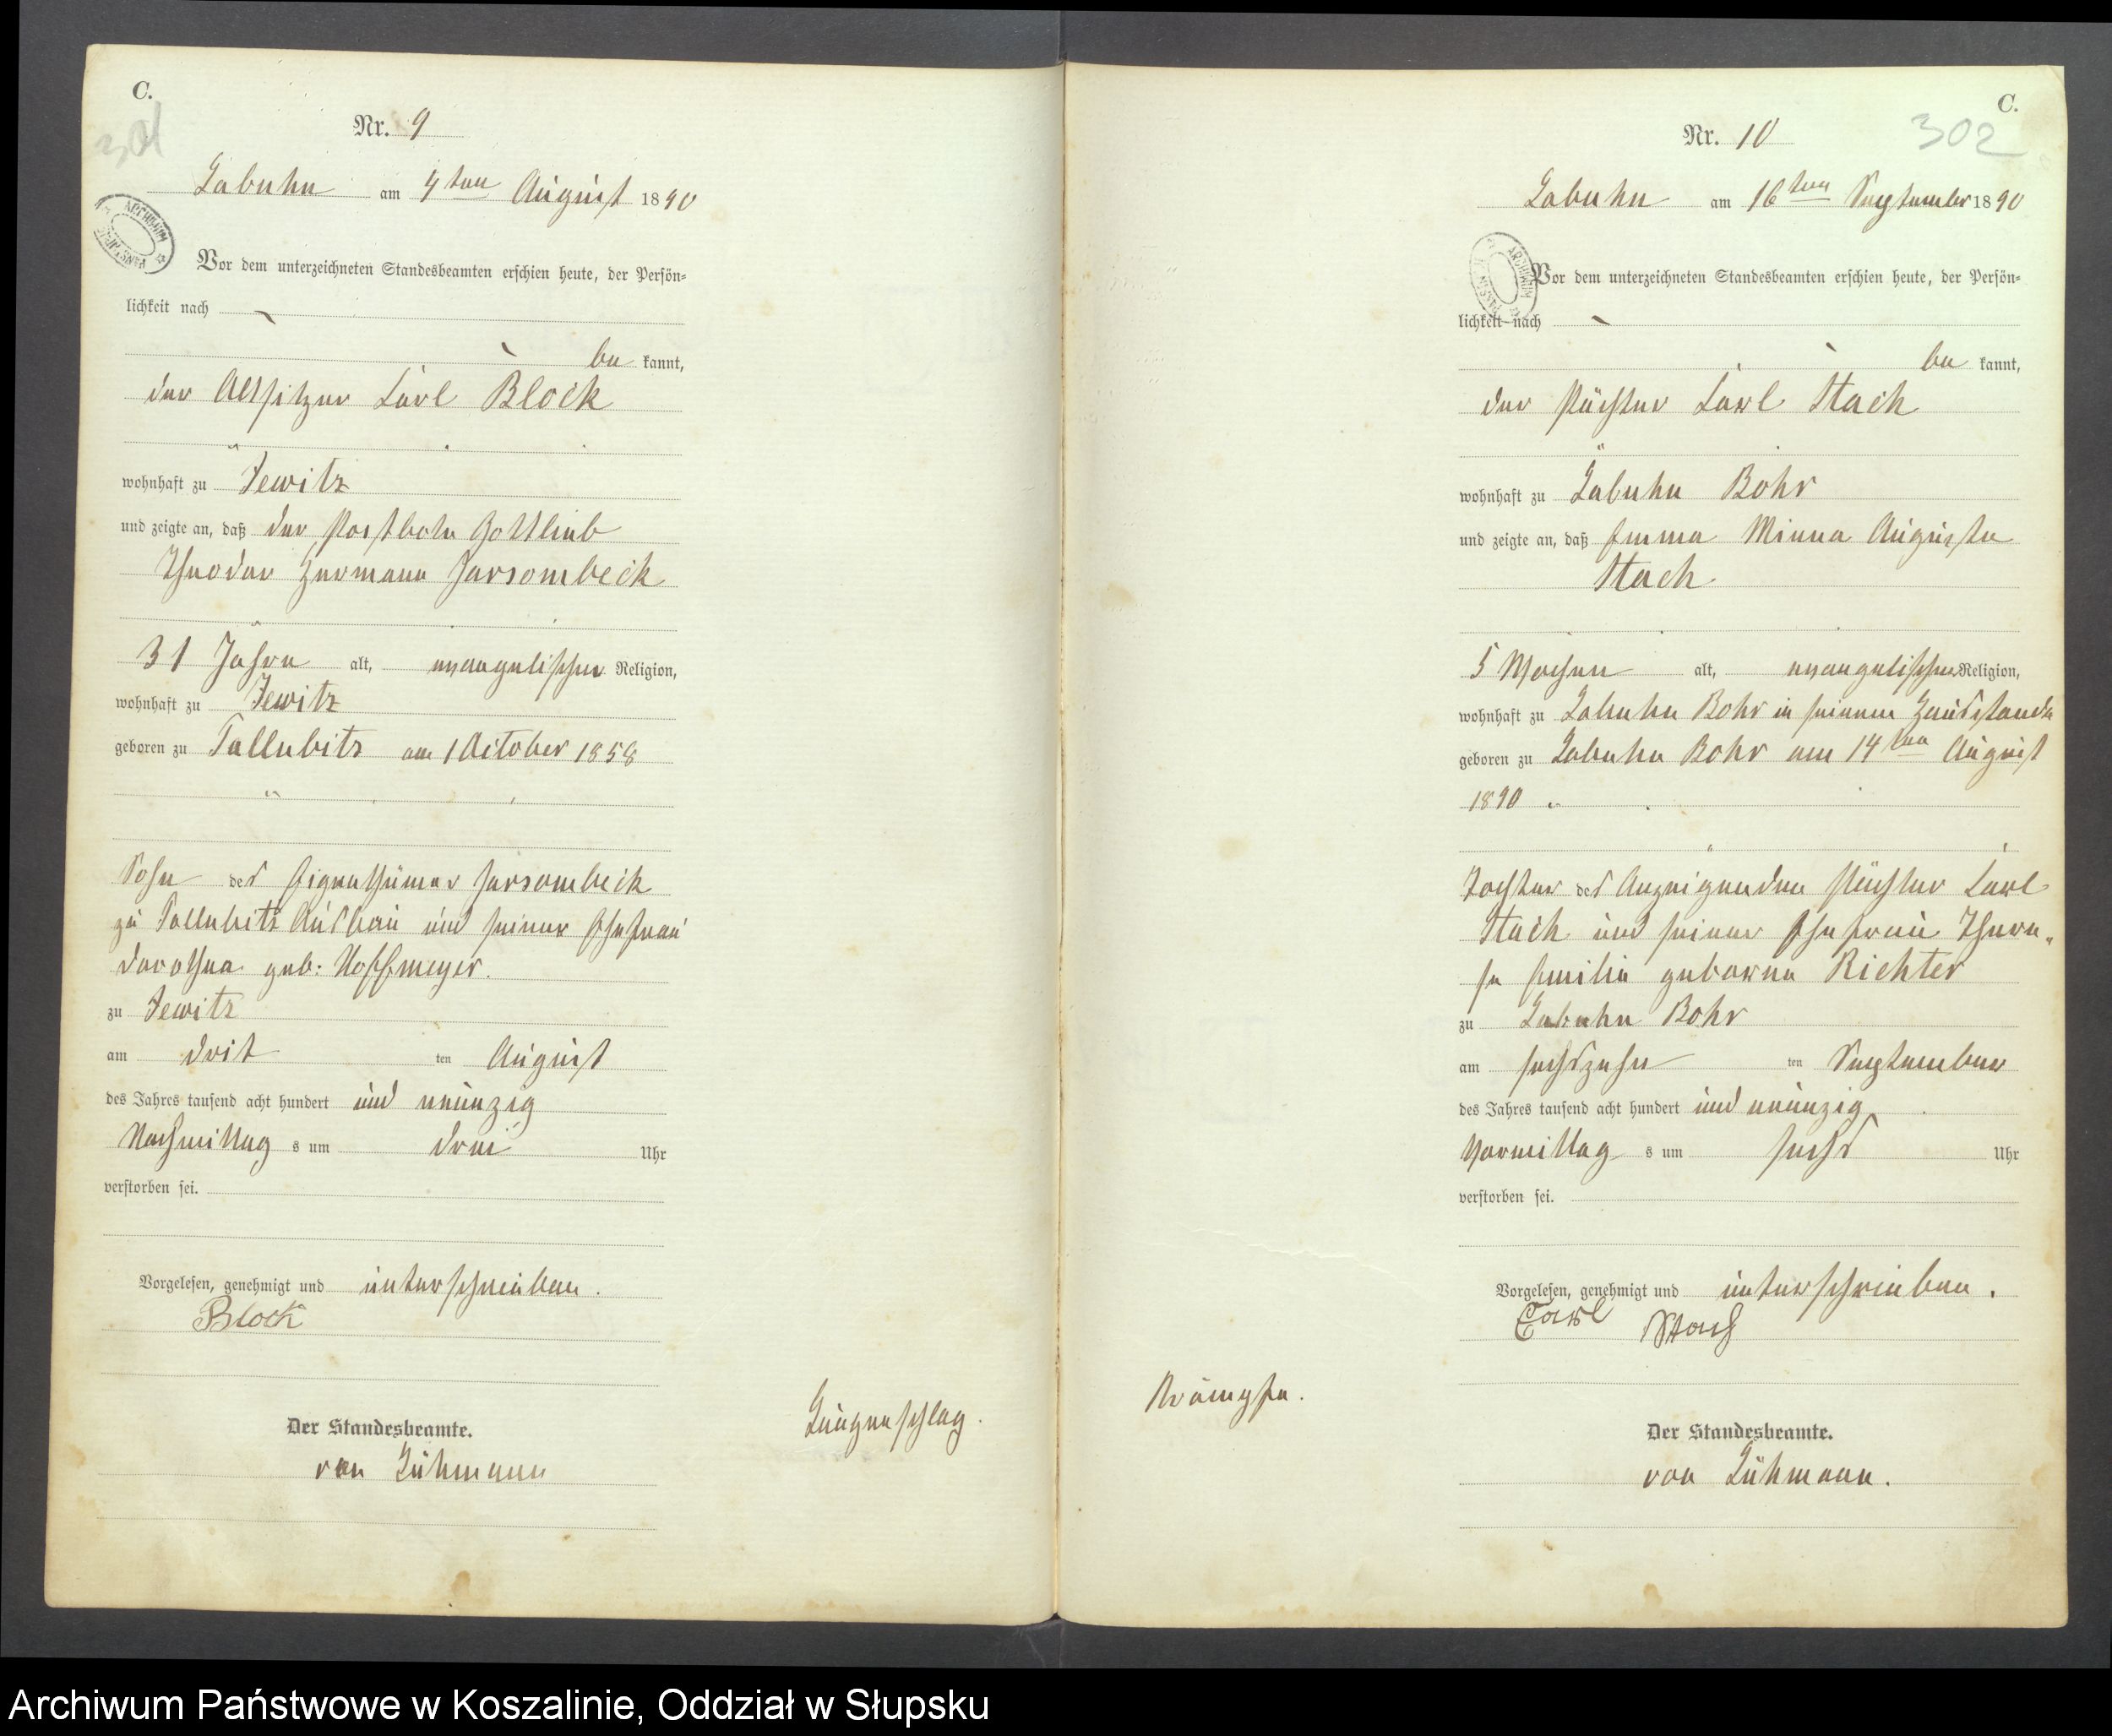 C.
301
Nr. 9
Labuhn am 4ten August 1890
ARCHIWUM
Vor dem unterzeichneten Standesbeamten erschien heute, der Persön-
lichkeit nach
be kannt,
der Altsitzer Carl Block
wohnhaft zu Jewitz
und zeigte an, daß der Postbote Gottlieb
Theodor Hermann Jarsombeck
31 Jahre alt, evangelischer Religion,
wohnhaft zu Jewitz
geboren zu Sallubitz am 1 October 1858
Sohn des Eigenthümer Jarsombeck
zu Sallubitz Ausbau und seiner Ehefrau
Dorothea geb: Noffmeyer.
zu Jewitz
am drit ten August
des Jahres tausend acht hundert und neunzig
Nachmittag s um drei Uhr
verstorben sei.
Vorgelesen, genehmigt und unterschrieben.
Block
Der Standesbeamte.
von Lühmann
Lungenschlag.
C.
302
Nr. 10
Labuhn am 16ten September 1890
ARCHIWUM
Vor dem unterzeichneten Standesbeamten erschien heute, der Persön-
lichkeit nach
be kannt,
der Pächter Carl Stach
wohnhaft zu Labuhn Bohr
und zeigte an, daß Emma Minna Auguste
Stach
5 Wochen alt, evangelischer Religion,
wohnhaft zu Labuhn Bohr in seinem Hausstande
geboren zu Labuhn Bohr am 14ten August
1890
Tochter des Anzeigenden Pächter Carl
Stach und seiner Ehefrau There-
se Emilie geborne Richter
zu Labuhn Bohr
am sechszehn ten September
des Jahres tausend acht hundert und neunzig
Vormittag s um sechs Uhr
verstorben sei.
Vorgelesen, genehmigt und unterschrieben.
Carl Stach
Krämpfe.
Der Standesbeamte.
von Lühmann.
Archiwum Państwowe w Koszalinie, Oddział w Słupsku